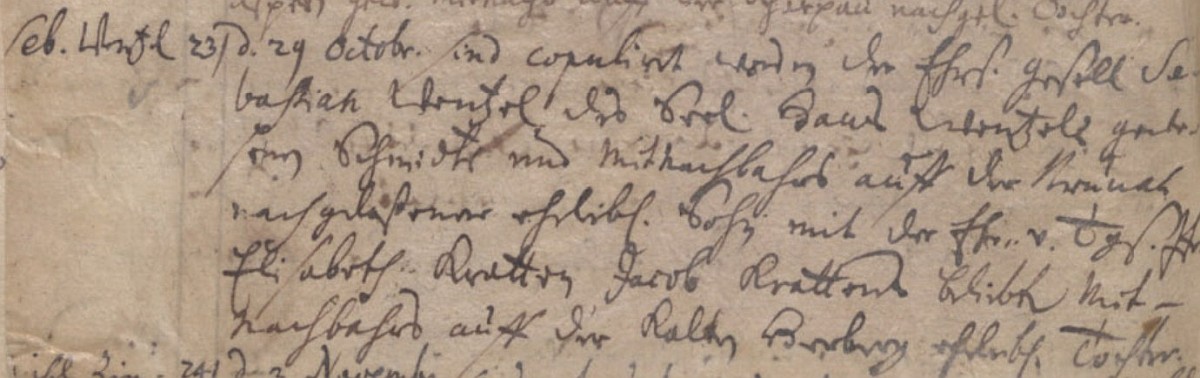 nachgel. Tochter.
Seb. Wentzel 23) d. 29 Octobr. sind copulirt worden der Ehrs. gesell Se-
bastian Wentzel des Seel. Hans Wentzels gewe-
senen Schmidts und Mitnachbahrs auff der
nachgelaßener ehelibl. Sohn mit der Ehr. v. Tgs. Jfr
Elisabeth Kratten Jacob Krattens beliebten Mit-
Nachbahrs auff der Kalten Herberg ehelibl. Tochter.
241 d. 3 Novembr